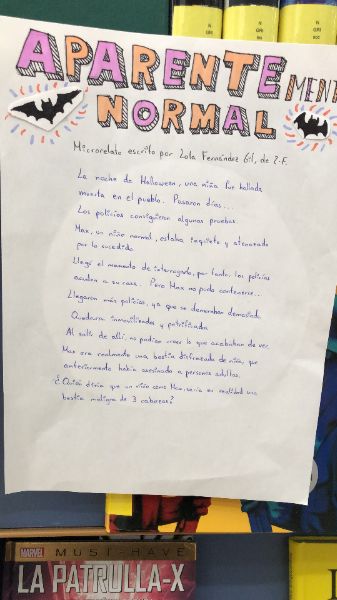 APARENTEMENTE
NORMAL
Microrrelato escrito por Lola Fernández Gil, de 2.F.
La noche de Halloween, una niña fue hallada
muerta en el pueblo. Pasaron días...
Los policías consiguieron algunas pruebas.
Max, un niño normal, estaba inquieto y atemorizado
por lo sucedido.
Llegó el momento de interrogarlo, por tanto, los policías
acuden a su casa. Pero Max no pudo contenerse...
Llegaron más policías, ya que se demoraban demasiado.
Quedaron inmovilizados y petrificados.
Al salir de allí, no podían creer lo que acababan de ver.
Max era realmente una bestia disfrazada de niño, que
anteriormente había asesinado a personas adultas.
¿Quién diría que un niño como Max, sería en realidad una
bestia maligna de 3 cabezas?
MARVEL MUST-HAVE
LA PATRULLA-X